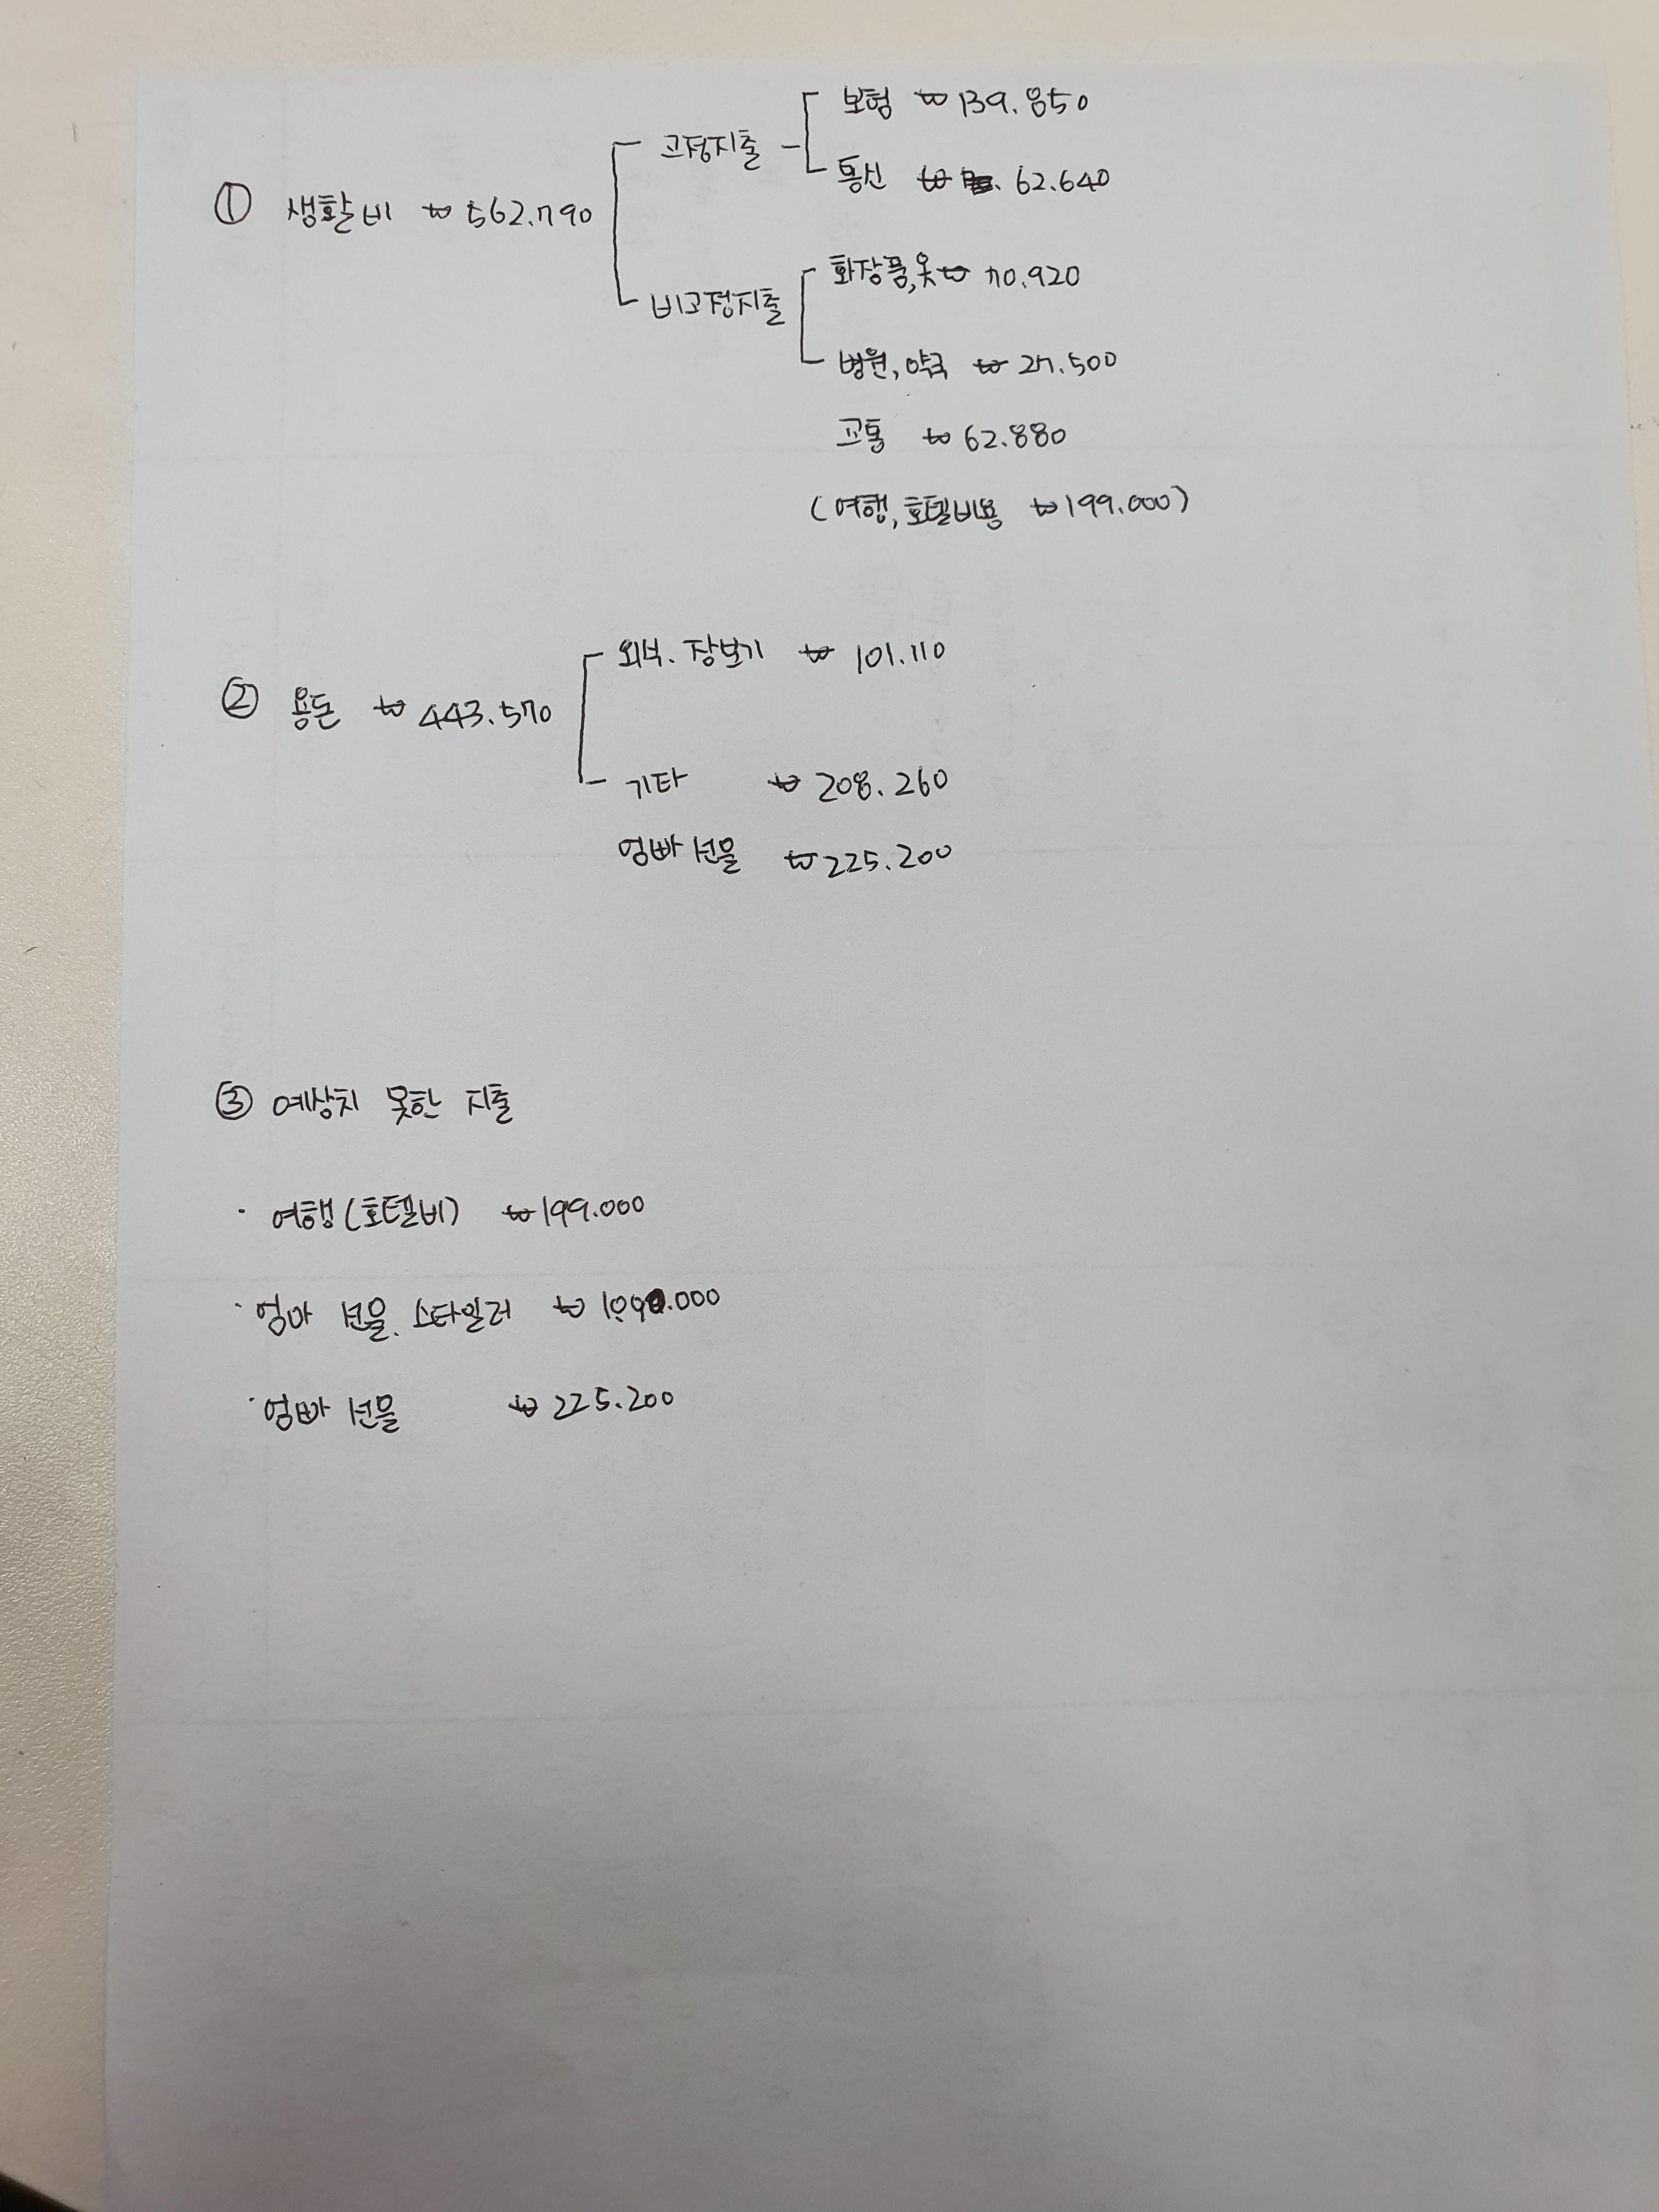 ① 생활비 ₩ 562.790
고정지출
보험 ₩ 139.850
통신 ₩ 62.640
비고정지출
화장품,옷 ₩ 70.920
병원,약국 ₩ 27.500
교통 ₩ 62.880
(여행,호텔비용 ₩199.000)
② 용돈 ₩ 443.570
외식.장보기 ₩ 101.110
기타 ₩ 208.260
엄빠 선물 ₩225.200
③ 예상치 못한 지출
· 여행(호텔비) ₩199.000
· 엄마 선물. 스타일러 ₩
· 엄빠 선물 ₩ 225.200